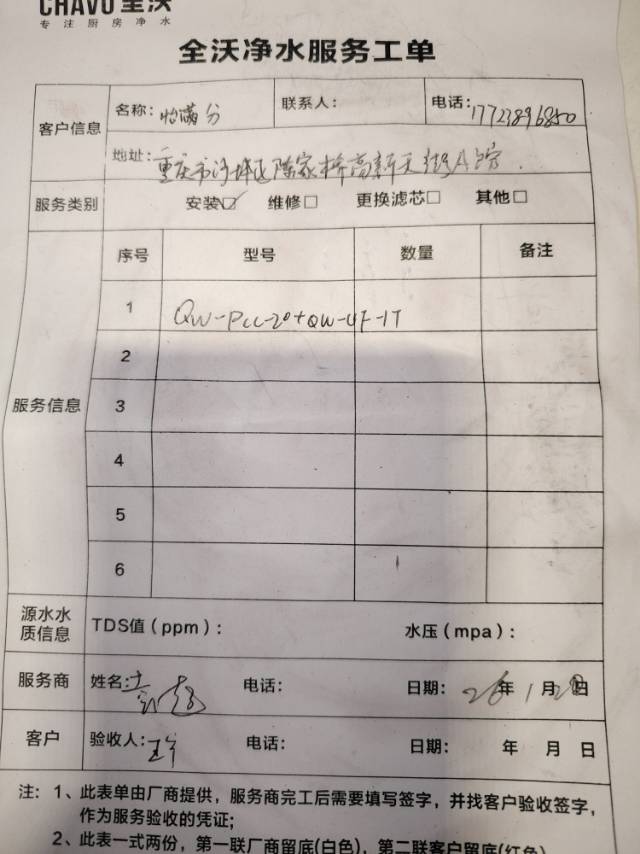 CHAVO 全沃
专注厨房净水
全沃净水服务工单
客户信息
名称：怡满分
联系人：
电话：17723896850
地址：重庆市沙坪坝区陈家桥高新天街A馆
服务类别
安装☑ 维修□ 更换滤芯□ 其他□
服务信息
序号 型号 数量 备注
1 QW-PCC-20+QW-UF-1T
2
3
4
5
6
源水水质信息
TDS值（ppm）： 水压（mpa）：
服务商 姓名： 电话： 日期：26年1月28日
客户 验收人：王 电话： 日期： 年 月 日
注：1、此表单由厂商提供，服务商完工后需要填写签字，并找客户验收签字，
作为服务验收的凭证；
2、此表一式两份，第一联厂商留底(白色)，第二联客户留底(红色)